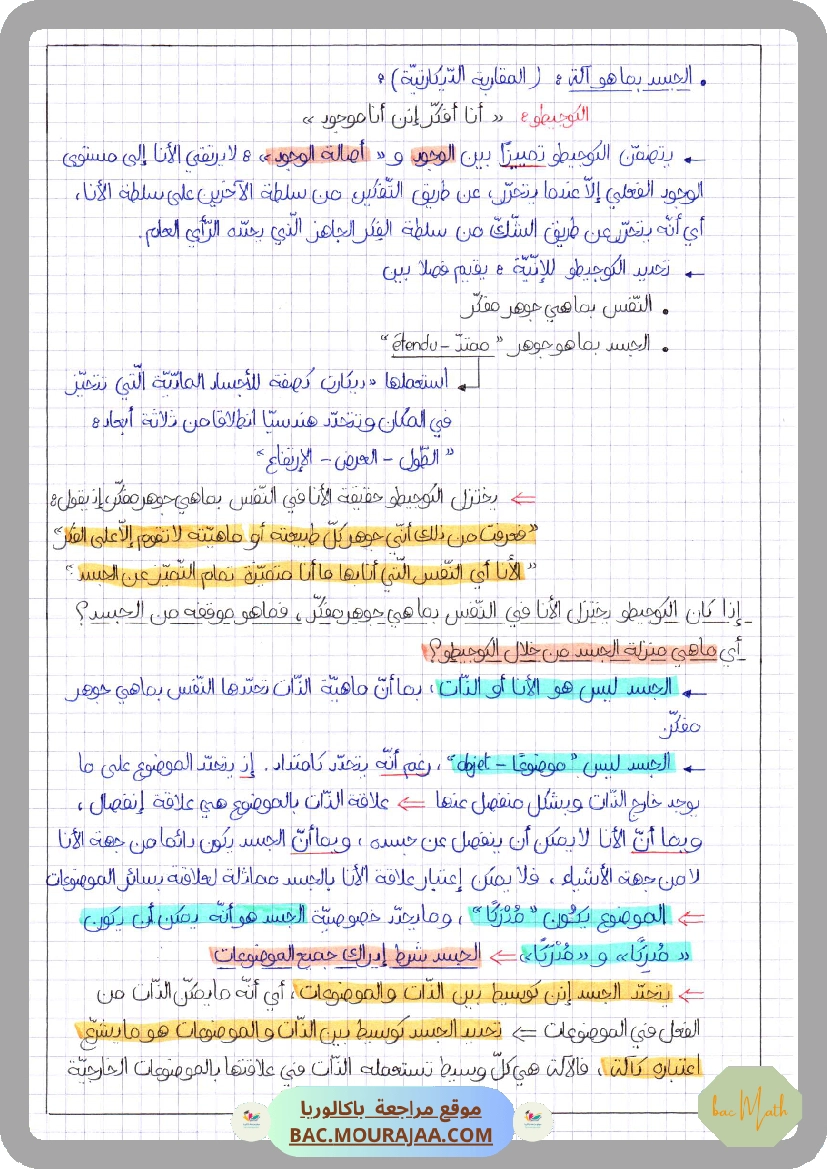 • الجسد بما هو آلة : ( المقاربة الدّيكارتيّة ) :
الكوجيطو : « أنا أفكّر إذن أنا موجود »
← يتضمّن الكوجيطو تمييزًا بين الوجود و « أصالة الوجود » : لا يرتقي الأنا إلى مستوى
الوجود الفعلي إلاّ عندما يتحرّر، عن طريق التّفكير، من سلطة الآخرين على سلطة الأنا،
أي أنّه يتحرّر عن طريق الشّكّ من سلطة الفكر الجاهز الّذي يحدّده الرّأي العام.
← تحديد الكوجيطو للإنّيّة : يقيم فصلا بين
• النّفس بما هي جوهر مفكّر
• الجسد بما هو جوهر " ممتدّ - étendu "
استعملها ديكارت كصفة للأجساد المادّيّة الّتي تتحيّز
في المكان وتتحدّد هندسيّا انطلاقا من ثلاثة أبعاد :
" الطّول - العرض - الإرتفاع "
⇐ يختزل الكوجيطو حقيقة الأنا في النّفس بما هي جوهر مفكّر، إذ يقول :
" فعرفت من ذلك أنّي جوهر كلّ طبيعته أو ماهيّته لا تقوم إلاّ على الفكر "
" الأنا أي النّفس الّتي أنا بها ما أنا متميّزة تمام التّميّز عن الجسد "
_ إذا كان الكوجيطو يختزل الأنا في النّفس بما هي جوهر مفكّر ، فما هو موقفه من الجسد ؟
_ أي ماهي منزلة الجسد من خلال الكوجيطو ؟
← الجسد ليس هو الأنا أو الذّات ، بما أنّ ماهيّة الذّات تحدّدها النّفس بماهي جوهر
مفكّر
← الجسد ليس " موضوعًا - objet " ، رغم أنّه يتحدّد كامتداد . إذ يتحدّد الموضوع على ما
يوجد خارج الذّات وبشكل منفصل عنها ⇐ علاقة الذّات بالموضوع هي علاقة إنفصال ،
وبما أنّ الأنا لا يمكن أن ينفصل عن جسده ، وبما أنّ الجسد يكون دائما من جهة الأنا
لا من جهة الأشياء ، فلا يمكن إعتبار علاقة الأنا بالجسد مماثلة لعلاقته بسائر الموضوعات
⇐ الموضوع يكون " مُدْرَكًا " ، وما يحدّد خصوصيّة الجسد هو أنّه يمكن أن يكون
« مُدرِكًا » و « مُدْرَكًا » ⇐ الجسد شرط إدراك جميع الموضوعات
⇐ يتحدّد الجسد إذن كوسيط بين الذّات والموضوعات ، أي أنّه ما يمكّن الذّات من
الفعل في الموضوعات ⇐ تحديد الجسد كوسيط بين الذّات والموضوعات هو ما يشرّع
اعتباره كآلة ، فالآلة هي كلّ وسيط تستعمله الذّات في علاقتها بالموضوعات الخارجيّة
موقع مراجعة باكالوريا
BAC.MOURAJAA.COM
bac Math